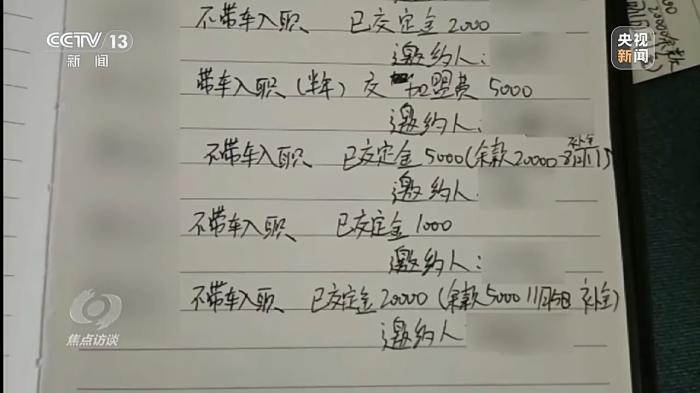 CCTV 13
新闻
央视
新闻
不带车入职、已交定金2000
邀约人:
带车入职(半年)交加盟费5000
邀约人:
不带车入职、已交定金5000(余款20000 补全
邀约人
不带车入职、已交定金1000
邀约人:
不带车入职、已交定金20000(余款5000 补全)
邀约人
焦点访谈